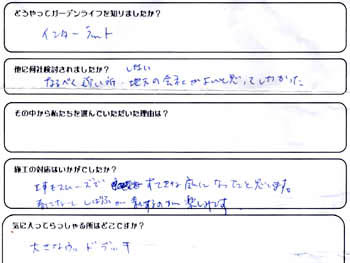 どうやってガーデンライフを知りましたか?
インターネット
他に何社検討されましたか? しない
なるべく近い所・地元の会社がよいと思ってしなかった
その中から私たちを選んでいただいた理由は?
施工の対応はいかがでしたか?
工事もスムーズで すてきな庭になったと思います。
春になり しばふが するのが 楽しみです
気に入ってらっしゃる所はどこですか?
大きなウッドデッキ